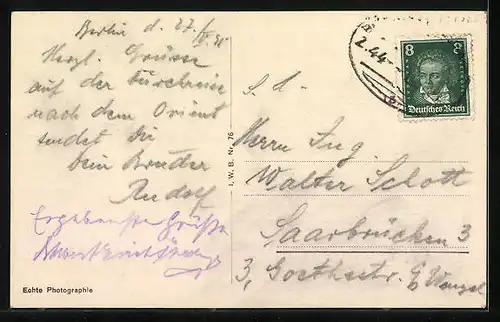 Berlin d. 27/
Herzl. Grüsse
auf der Durchreise
nach dem Orient
sendet Dir
Dein Bruder
Rudolf
Ergebenste Grüße
Echte Photographie
I. W. B. Nr. 76
8 8
Deutsches Reich
Herrn Ing.
Walter Schott
Saarbrücken 3
3, Goethestr.